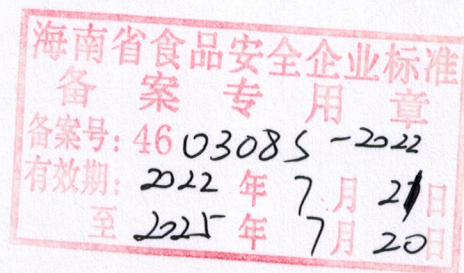 海南省食品安全企业标准
备案专用章
备案号: 46 0308S-2022
有效期: 2022 年 7 月 21 日
至 2025 年 7 月 20 日